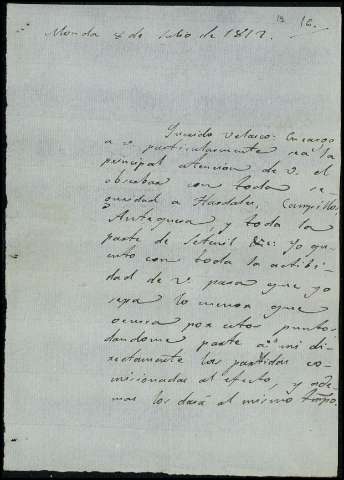 16.
Monda 8 de Julio de 1812.
Querido Velasco: Encargo
a v. particularmente sea la
principal atencion de v. el
observar con toda se
guridad a Hardales, Campillos,
Antequera y toda la
parte de Setenil &c: Yo cu
ento con toda la actibi
dad de v. para que yo
sepa lo menos que
ocurra por estos puntos
dandome parte a mi di
rectamente las partidas co
misionadas al efecto, y ade
mas los dará al mismo tmpo.